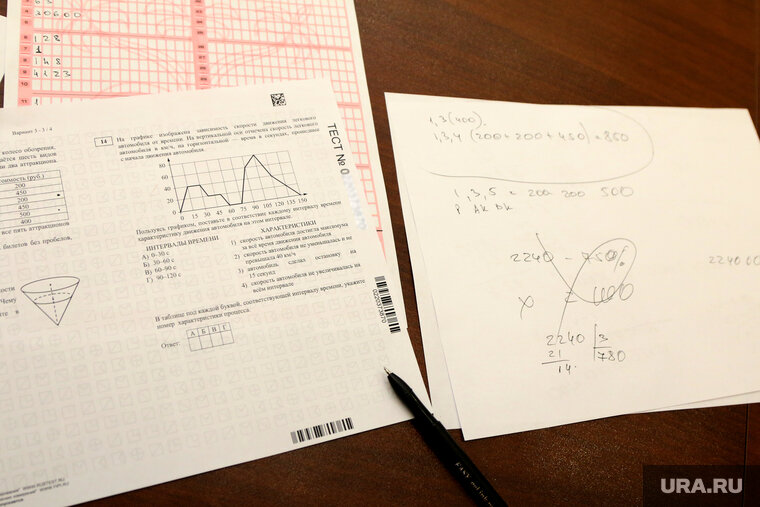 5 63
4 30600
5
6 128
7 1
8 148
9 4123
10
11 1
Вариант 3 - 3 / 4
колесо обозрения,
шесть видов
два аттракциона
(руб.)
200
450
200
450
500
400
все пять аттракционов
билетов без пробелов,
Чему
14
На графике изображена зависимость скорости движения легкового
автомобиля от времени. На вертикальной оси отмечена скорость легкового
автомобиля в км/ч, на горизонтальной — время в секундах, прошедшее
с начала движения автомобиля.
80
60
40
20
0 15 30 45 60 75 90 105 120 135 150
Пользуясь графиком, поставьте в соответствие каждому интервалу времени
характеристику движения автомобиля на этом интервале.
ИНТЕРВАЛЫ ВРЕМЕНИ
А) 0–30 с
Б) 30–60 с
В) 60–90 с
Г) 90–120 с
ХАРАКТЕРИСТИКИ
1) скорость автомобиля достигла максимума
за всё время движения автомобиля
2) скорость автомобиля не уменьшалась и не
превышала 40 км/ч
3) автомобиль сделал остановку на
15 секунд
4) скорость автомобиля не увеличивалась на
всём интервале
В таблице под каждой буквой, соответствующей интервалу времени, укажите
номер характеристики процесса.
Ответ:
А Б В Г
ТЕСТ № 0
0220738870
WWW.RUSTEST.RU
1,3(400)
1,3,4 (200+200+450) = 850
1,3,5 = 200 200 500
2240 - 750%
x
2240 3
21 780
14
URA.RU